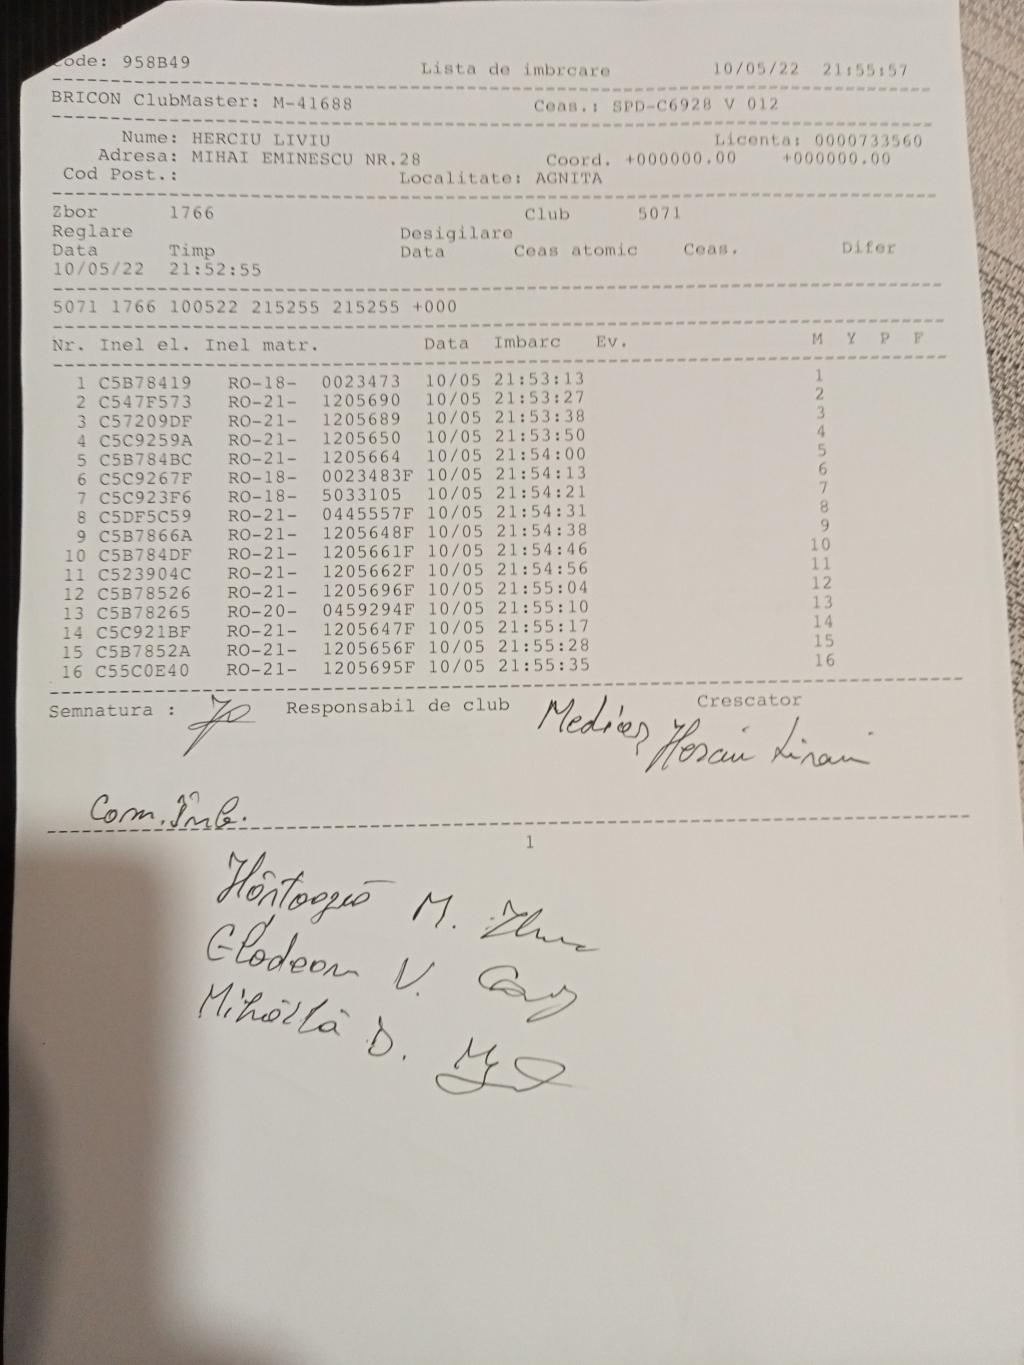 ode: 958B49 Lista de imbrcare 10/05/22 21:55:57
BRICON ClubMaster: M-41688 Ceas.: SPD-C6928 V 012
Nume: HERCIU LIVIU Licenta: 0000733560
Adresa: MIHAI EMINESCU NR.28 Coord. +000000.00 +000000.00
Cod Post.: Localitate: AGNITA
Zbor 1766 Club 5071
Reglare Desigilare
Data Timp Data Ceas atomic Ceas. Difer
10/05/22 21:52:55
5071 1766 100522 215255 215255 +000
Nr. Inel el. Inel matr. Data Imbarc Ev. M Y P F
1 C5B78419 RO-18- 0023473 10/05 21:53:13 1
2 C547F573 RO-21- 1205690 10/05 21:53:27 2
3 C57209DF RO-21- 1205689 10/05 21:53:38 3
4 C5C9259A RO-21- 1205650 10/05 21:53:50 4
5 C5B784BC RO-21- 1205664 10/05 21:54:00 5
6 C5C9267F RO-18- 0023483F 10/05 21:54:13 6
7 C5C923F6 RO-18- 5033105 10/05 21:54:21 7
8 C5DF5C59 RO-21- 0445557F 10/05 21:54:31 8
9 C5B7866A RO-21- 1205648F 10/05 21:54:38 9
10 C5B784DF RO-21- 1205661F 10/05 21:54:46 10
11 C523904C RO-21- 1205662F 10/05 21:54:56 11
12 C5B78526 RO-21- 1205696F 10/05 21:55:04 12
13 C5B78265 RO-20- 0459294F 10/05 21:55:10 13
14 C5C921BF RO-21- 1205647F 10/05 21:55:17 14
15 C5B7852A RO-21- 1205656F 10/05 21:55:28 15
16 C55C0E40 RO-21- 1205695F 10/05 21:55:35 16
Semnatura : Responsabil de club Crescator
Com. Îmb.
1
M.
Glodean V.
Mihăilă D.